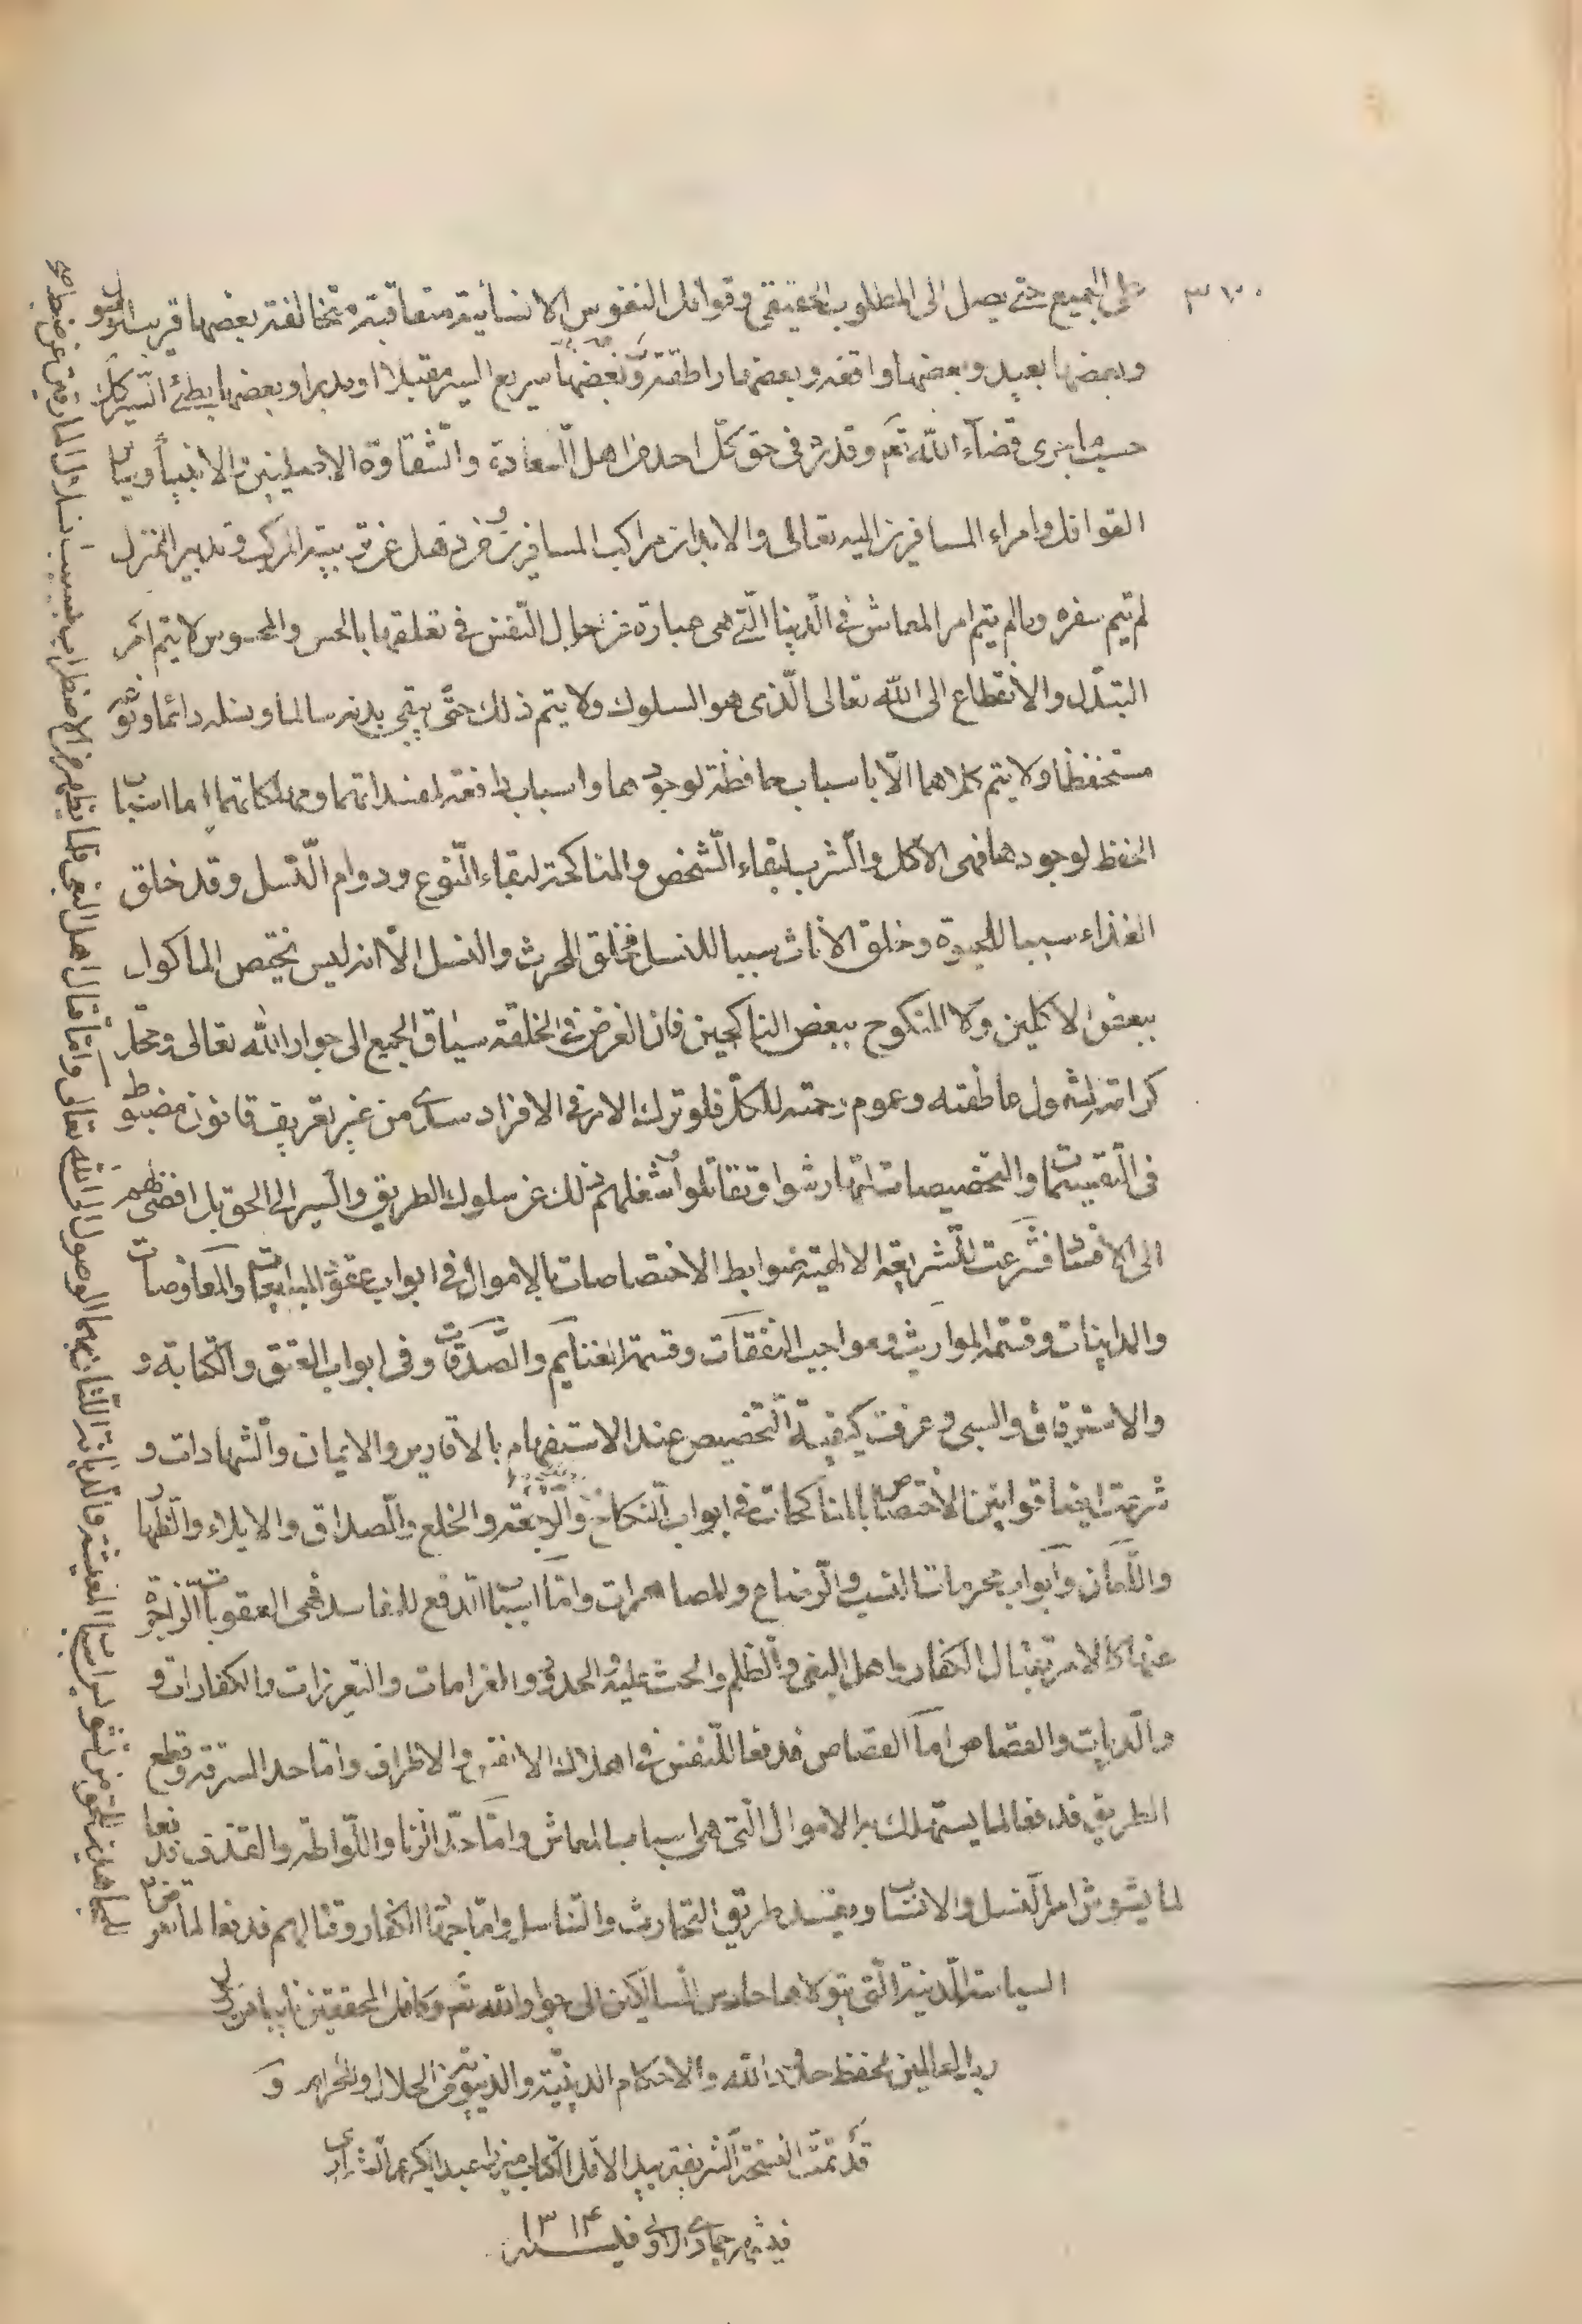 ٣٧٠
على الجميع حتى يصل الى المطلوب الحقيقى وقوافل النفوس الانسانية متعاقبة متخالفة بعضها قريب الوصول
وبعضها بعيد وبعضها واقفة وبعضها راطقة وبعضها سريع السير مقبلا او مدبرا وبعضها بطئ السير كل ذلك
حسب ما جرى قضآء الله تعم وقدره فى حق كل احد من اهل السعادة والشقاوة الازليتين والانبيآء رؤسا
القوافل وامراء المسافرين اليه تعالى والابدان مراكب المسافرين فمن ذهل عن تربية المركب وتدبير المنزل
لم يتم سفره وما لم يتم امر المعاش فى الدنيا التى هى عبارة عن حال النفس فى تعلقها بالحس والمحسوس لا يتم امر
التبتل والانقطاع الى الله تعالى الذى هو السلوك ولا يتم ذلك حتى يبقى بدنه سالما ونسله دائما ونوعه
مستحفظا ولا يتم كلاهما الا باسباب حافظة لوجودهما واسباب دافعة لمفسداتهما ومهلكاتهما اما اسباب
الحفظ لوجودهما فهى الاكل والشرب لبقاء الشخص والمناكحة لبقاء النوع ودوام النسل وقد خلق
الغذاء سببا للحيوة وخلق الاناث سببا للنسل فخلق الحرث والنسل الا انه ليس يختص الماكول
ببعض الاكلين ولا المنكوح ببعض الناكحين فان الغرض فى الخلقة سياق الجميع الى جوار الله تعالى ومحل
كرامته لشمول عاطفته وعموم رحمته للكل فلو ترك الامر فى الافراد سدى من غير تعريف قانون مضبوط
فى التقسيمات والتخصيصات لتهارشوا وتقاتلوا وشغلهم ذلك عن سلوك الطريق والسير الى الحق بل افضى بهم
الى الافساد فشرعت الشريعة الالهية ضوابط الاختصاصات بالاموال فى ابواب عقود المبايعات والمعاوضات
والمداينات وقسمة المواريث ومواجب النفقات وقسمة الغنايم والصدقات وفى ابواب العتق والكتابة و
والاسترقاق والسبى وعرفت كيفية التخصيص عند الاستفهام بالاقارير والايمان والشهادات و
شرعت ايضا قوانين الاختصاص بالمناكحات فى ابواب النكاح والرجعة والخلع والصداق والايلاء والظهار
واللعان وابواب محرمات النسب والرضاع والمصاهرات واما اسباب الدفع للمفاسد فهى العقوبات الزاجرة
عنها كالامر بقتال الكفار واهل البغى والظلم والحث عليه والحدود والغرامات والتعزيرات والكفارات و
والديات والقصاص اما القصاص فدفعا للنفس فى اهلاك الانفس والاطراف واما حد السرقة وقطع
الطريق فدفعا لما يستهلك به الاموال التى هى اسباب المعاش واما حد الزنا واللواطة والقذف فدفعا
لما يشوش امر النسل والانساب ويفسد طريق التحارث والتناسل واما جهاد الكفار وقتالهم فدفعا لما يعرض
السياسة المدينة التى يتولاها حارس السالكين الى جوار الله تم وكافل المحققين نايبا من رسول
رب العالمين لحفظ حدود الله والاحكام الدينية والدنيوية من الحلال والحرام و
قد تمت النسخة الشريفة بيد الاقل الكتاب ميرزا عبدالكريم الشيرازى
فى شهر جمادى الاولى فى سنه ١٣١٤